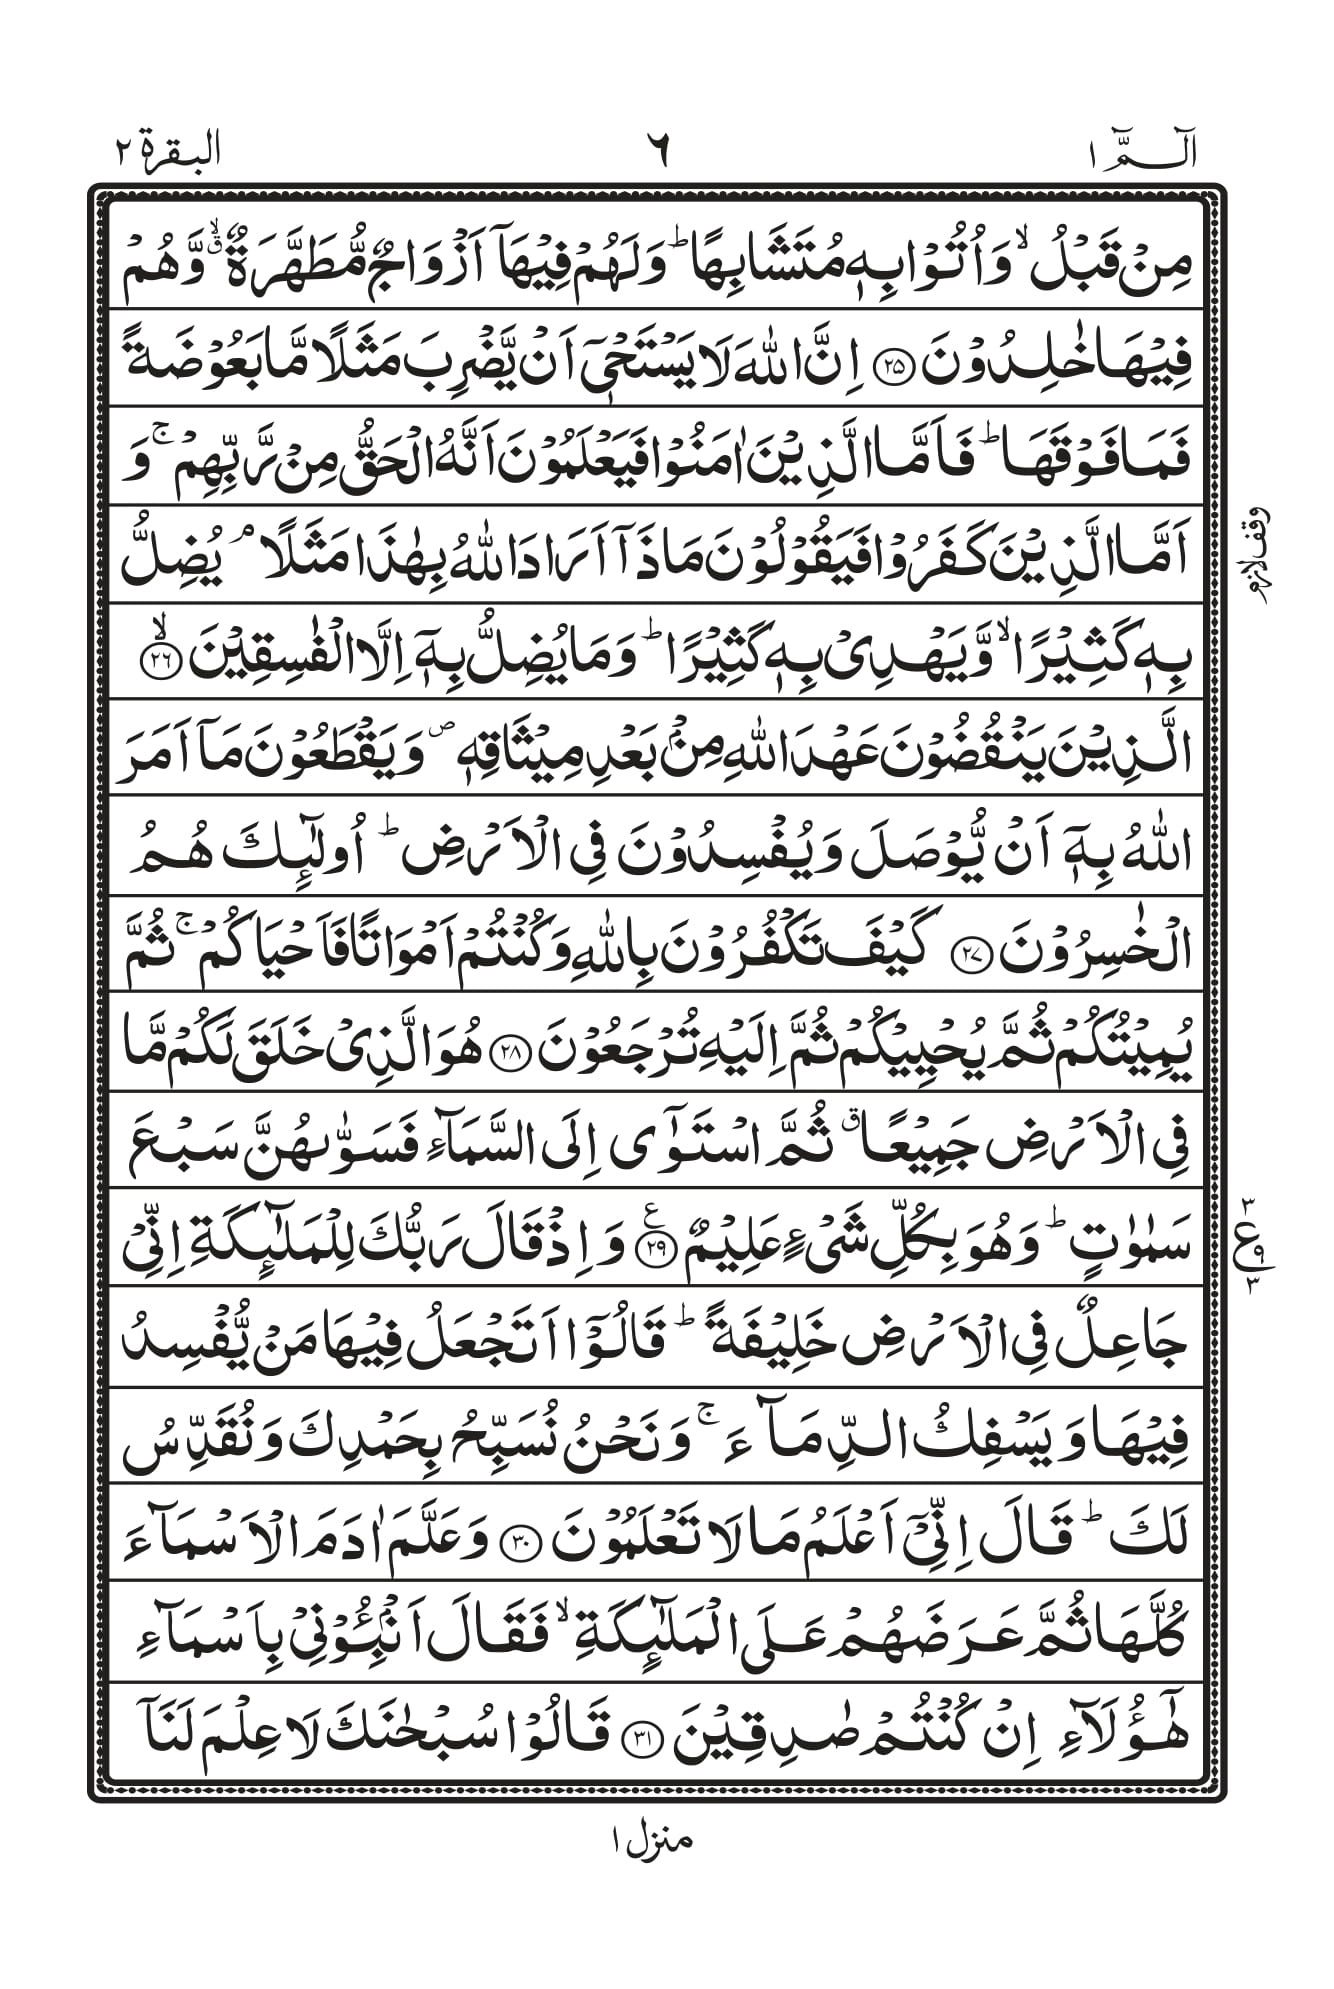 الٓـمّٓ ١
٦
البقرة ٢
مِنۡ قَبۡلُ ۙ وَاُتُوۡا بِهٖ مُتَشَابِهًا ؕ وَلَهُمۡ فِيۡهَآ اَزۡوَاجٌ مُّطَهَّرَةٌ ۙۗ وَّهُمۡ
فِيۡهَا خٰلِدُوۡنَ ﴿۲۵﴾ اِنَّ اللّٰهَ لَا يَسۡتَحۡىٖۤ اَنۡ يَّضۡرِبَ مَثَلًا مَّا بَعُوۡضَةً
فَمَا فَوۡقَهَا ؕ فَاَمَّا الَّذِيۡنَ اٰمَنُوۡا فَيَعۡلَمُوۡنَ اَنَّهُ الۡحَقُّ مِنۡ رَّبِّهِمۡ ۚ وَ
اَمَّا الَّذِيۡنَ كَفَرُوۡا فَيَقُوۡلُوۡنَ مَاذَآ اَرَادَ اللّٰهُ بِهٰذَا مَثَلًا ۘ يُضِلُّ
بِهٖ كَثِيۡرًا ۙ وَّيَهۡدِىۡ بِهٖ كَثِيۡرًا ؕ وَمَا يُضِلُّ بِهٖۤ اِلَّا الۡفٰسِقِيۡنَ ۙ﴿۲۶﴾
الَّذِيۡنَ يَنۡقُضُوۡنَ عَهۡدَ اللّٰهِ مِنۡۢ بَعۡدِ مِيۡثَاقِهٖ ۪ وَيَقۡطَعُوۡنَ مَآ اَمَرَ
اللّٰهُ بِهٖۤ اَنۡ يُّوۡصَلَ وَيُفۡسِدُوۡنَ فِى الۡاَرۡضِ ؕ اُولٰٓئِكَ هُمُ
الۡخٰسِرُوۡنَ ﴿۲۷﴾ كَيۡفَ تَكۡفُرُوۡنَ بِاللّٰهِ وَكُنۡتُمۡ اَمۡوَاتًا فَاَحۡيَاكُمۡ ۚ ثُمَّ
يُمِيۡتُكُمۡ ثُمَّ يُحۡيِيۡكُمۡ ثُمَّ اِلَيۡهِ تُرۡجَعُوۡنَ ﴿۲۸﴾ هُوَ الَّذِىۡ خَلَقَ لَكُمۡ مَّا
فِى الۡاَرۡضِ جَمِيۡعًا ۗ ثُمَّ اسۡتَوٰٓى اِلَى السَّمَآءِ فَسَوّٰٮهُنَّ سَبۡعَ
سَمٰوٰتٍ ؕ وَهُوَ بِكُلِّ شَىۡءٍ عَلِيۡمٌ ﴿۲۹﴾ ع وَاِذۡ قَالَ رَبُّكَ لِلۡمَلٰٓئِكَةِ اِنِّىۡ
جَاعِلٌ فِى الۡاَرۡضِ خَلِيۡفَةً ؕ قَالُوۡٓا اَتَجۡعَلُ فِيۡهَا مَنۡ يُّفۡسِدُ
فِيۡهَا وَيَسۡفِكُ الدِّمَآءَ ۚ وَنَحۡنُ نُسَبِّحُ بِحَمۡدِكَ وَنُقَدِّسُ
لَكَ ؕ قَالَ اِنِّىۡٓ اَعۡلَمُ مَا لَا تَعۡلَمُوۡنَ ﴿۳۰﴾ وَعَلَّمَ اٰدَمَ الۡاَسۡمَآءَ
كُلَّهَا ثُمَّ عَرَضَهُمۡ عَلَى الۡمَلٰٓئِكَةِ ۙ فَقَالَ اَنۡۢبِـُٔوۡنِىۡ بِاَسۡمَآءِ
هٰٓؤُلَآءِ اِنۡ كُنۡتُمۡ صٰدِقِيۡنَ ﴿۳۱﴾ قَالُوۡا سُبۡحٰنَكَ لَا عِلۡمَ لَنَآ
وقف لازم
٣
ع
٩
٣
منزل ١